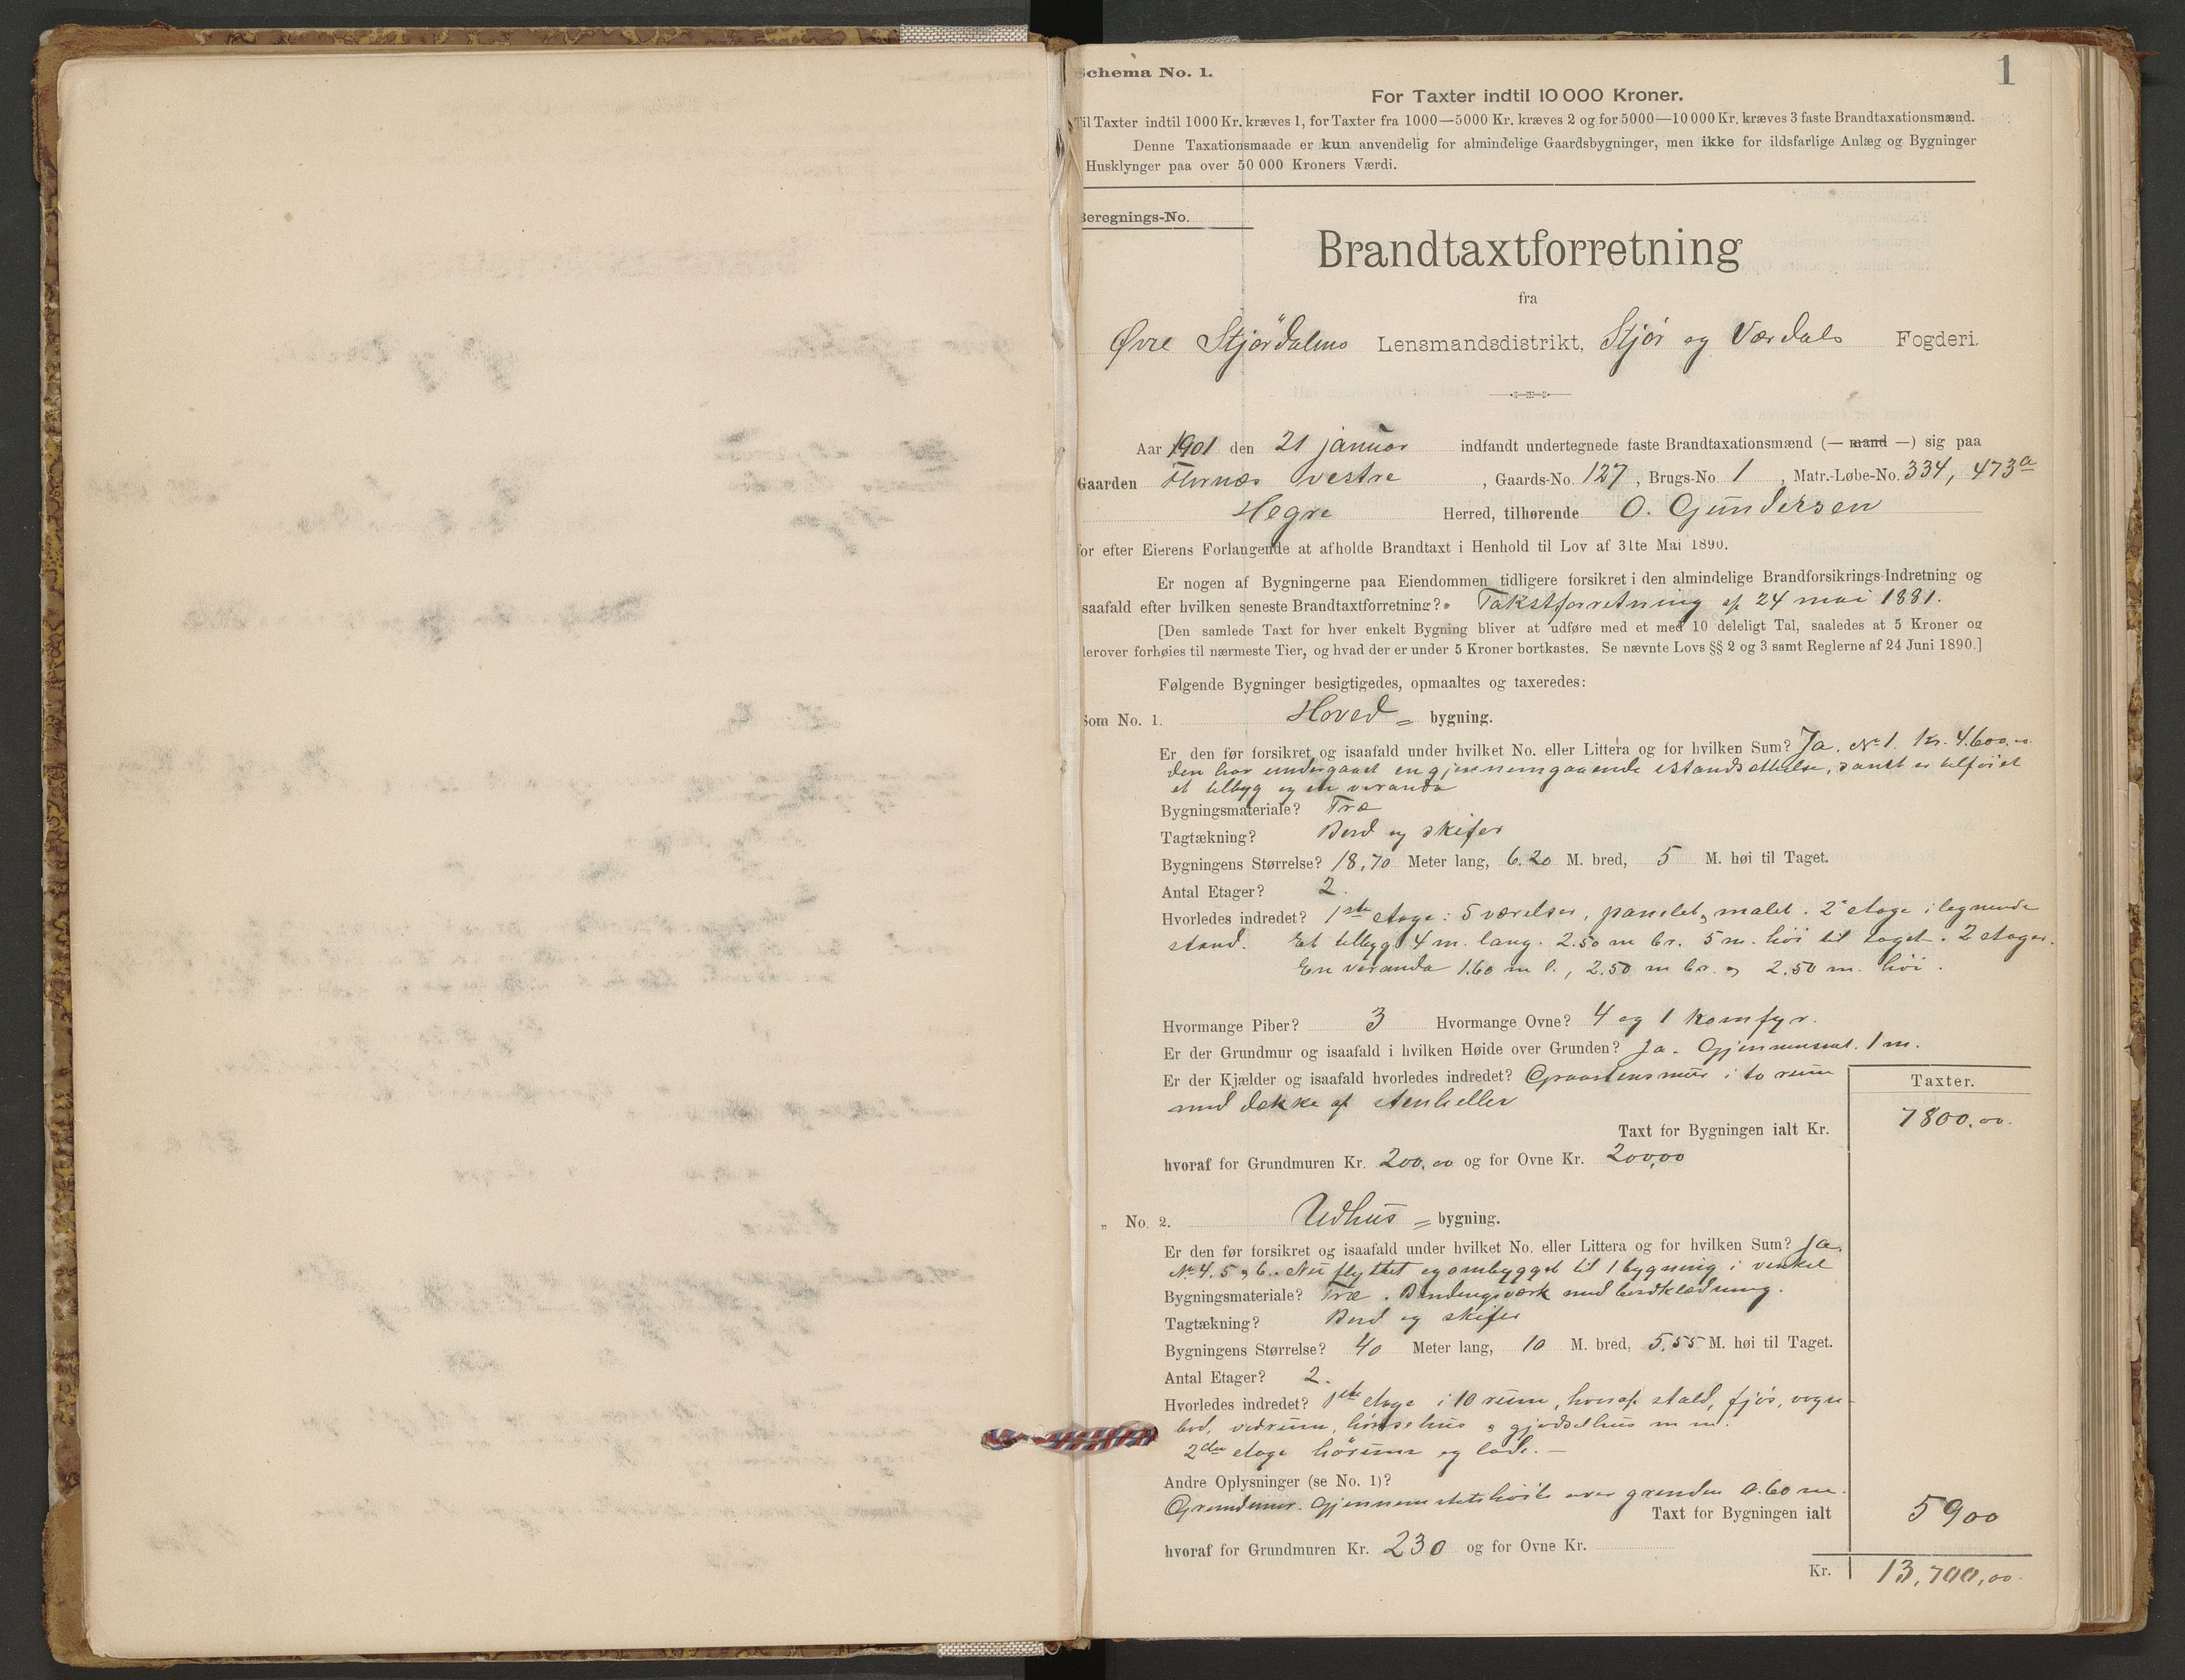 1
Schema No. 1.
For Taxter indtil 10 000 Kroner.
Til Taxter indtil 1000 Kr. kræves 1, for Taxter fra 1000—5000 Kr. kræves 2 og for 5000—10 000 Kr. kræves 3 faste Brandtaxationsmænd.
Denne Taxationsmaade er kun anvendelig for almindelige Gaardsbygninger, men ikke for ildsfarlige Anlæg og Bygninger
Husklynger paa over 50 000 Kroners Værdi.
Beregnings-No.
Brandtaxtforretning
fra
Øvre Stjørdalens Lensmandsdistrikt, Stjør og Værdals Fogderi.
Aar 1901 den 21 januar indfandt undertegnede faste Brandtaxationsmænd (— mand —) sig paa
Gaarden Flornæs vestre , Gaards-No. 127 , Brugs-No. 1 , Matr.-Løbe-No. 334, 473a
Hegre Herred, tilhørende O. Gundersen
for efter Eierens Forlangende at afholde Brandtaxt i Henhold til Lov af 31te Mai 1890.
Er nogen af Bygningerne paa Eiendommen tidligere forsikret i den almindelige Brandforsikrings-Indretning og
isaafald efter hvilken seneste Brandtaxtforretning? Takstforretning af 24 mai 1881.
[Den samlede Taxt for hver enkelt Bygning bliver at udføre med et med 10 deleligt Tal, saaledes at 5 Kroner og
derover forhøies til nærmeste Tier, og hvad der er under 5 Kroner bortkastes. Se nævnte Lovs §§ 2 og 3 samt Reglerne af 24 Juni 1890.]
Følgende Bygninger besigtigedes, opmaaltes og taxeredes:
Som No. 1. Hoved = bygning.
Er den før forsikret og isaafald under hvilket No. eller Littera og for hvilken Sum? Ja. No 1. Kr. 4.600.00
den har undergaaet en gjennemgaaende istandsettelse, samt er tilføiet
et tilbyg og en veranda
Bygningsmateriale? Træ
Tagtækning? Bord og skifer
Bygningens Størrelse? 18,70 Meter lang, 6.20 M. bred, 5 M. høi til Taget.
Antal Etager? 2.
Hvorledes indredet? 1ste etage: 5 værelser, panelet, malet. 2 etage i lignende
stand. Et tilbyg 4 m. lang. 2.50 m br. 5 m. høi til taget. 2 etager.
En veranda 1.60 m l., 2.50 m br. og 2.50 m. høi.
Hvormange Piber? 3 Hvormange Ovne? 4 og 1 komfyr.
Er der Grundmur og isaafald i hvilken Høide over Grunden? Ja. Gjennemsnit. 1 m.
Er der Kjælder og isaafald hvorledes indredet? Graastensmur i to rum
med dække af stenheller
Taxter.
Taxt for Bygningen ialt Kr. 7800.00.
hvoraf for Grundmuren Kr. 200.00 og for Ovne Kr. 200,00
„ No. 2. Udhus = bygning.
Er den før forsikret og isaafald under hvilket No. eller Littera og for hvilken Sum? Ja.
No 4, 5 og 6. Nu flyttet og ombygget til 1 bygning i vinkel
Bygningsmateriale? Træ. Bindingsværk med bordklædning.
Tagtækning? Bord og skifer
Bygningens Størrelse? 40 Meter lang, 10 M. bred, 5.55 M. høi til Taget.
Antal Etager? 2.
Hvorledes indredet? 1ste etage i 10 rum, hvoraf stald, fjøs, vogn-
bod, vedrum, hønsehus og gjødselhus m m.
2den etage hørum og lade. —
Andre Oplysninger (se No. 1)?
Grundmur. Gjennemsnitshøide over grunden 0.60 m.
Taxt for Bygningen ialt 5900
hvoraf for Grundmuren Kr. 230 og for Ovne Kr.
Kr. 13,700,00.